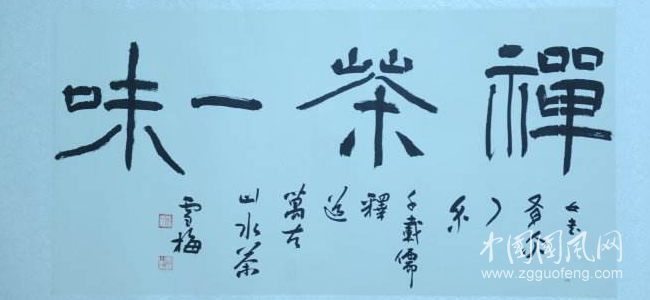 禪茶一味
千載儒
釋
道
萬古
山水茶
雪梅
中国国风网
www.zgguofeng.com